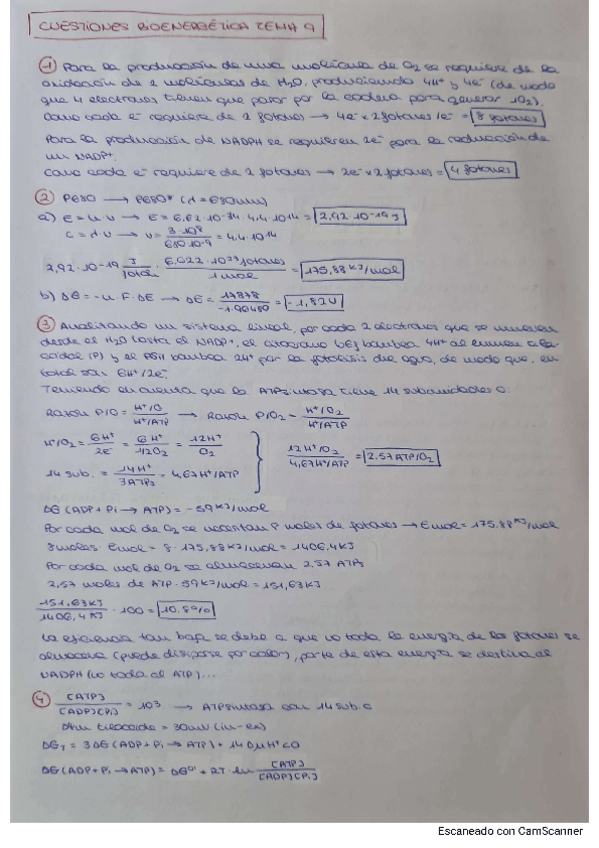 CUESTIONES BIOENERGÉTICA TEMA 9
① Para la producción de una molécula de O2 se requiere de la
oxidación de 2 moléculas de H2O, produciendo 4H+ y 4e- (de modo
que 4 electrones tienen que pasar por la cadena para generar 1O2).
Como cada e- requiere de 2 fotones → 4e- x 2 fotones/e- = 8 fotones
Para la producción de NADPH se requieren 2e- para la reducción de
un NADP+.
Como cada e- requiere de 2 fotones → 2e- x 2 fotones = 4 fotones
② P680 → P680* (λ = 680nm)
a) E = h·ν → E = 6,62·10-34·4.4·10^14 = 2,92·10-19 J
C = λ·ν → ν = 3·10^8 / 680·10-9 = 4.4·10^14
2,92·10-19 J/fotón · 6,022·10^23 fotones / 1 mol = 175,88 KJ/mol
b) ΔG = -n·F·ΔE → ΔE = = -1,82V
③ Analizando un sistema lineal, por cada 2 electrones que se mueven
desde el H2O hasta el NADP+, el citocromo b6f bombea 4H+ al lumen
(P) y el PSII bombea 2H+ por la fotolisis del agua, de modo que, en
total son 6H+/2e-
Teniendo en cuenta que la ATPsintasa tiene 14 subunidades c:
Razón P/O = H+/O / H+/ATP → Razón P/O2 = H+/O2 / H+/ATP
H+/O2 = 6H+/2e- = 6H+/1/2O2 = 12H+/O2
14 sub. = 14H+/3ATPs = 4,67H+/ATP
12H+/O2 / 4,67H+/ATP = 2.57 ATP/O2
ΔG (ADP + Pi → ATP) = -59KJ/mol
Por cada mol de O2 se necesitan 8 moles de fotones → Emol = 175.88 KJ/mol
8moles Emol = 8·175,88KJ/mol = 1406,4KJ
Por cada mol de O2 se almacenan 2,57 ATPs
2,57 moles de ATP · 59KJ/mol = 151,63KJ
151,63KJ / 1406,4KJ · 100 = 10,8%
La eficiencia tan baja se debe a que no toda la energía de los fotones se
almacena (puede disiparse por calor), parte de esta energía se destina al
NADPH (no toda al ATP)...
④ [ATP] / [ADP][Pi] = 10^3 → ATPsintasa con 14 sub. c
Δψm tilacoide = 30mV (in-ex)
ΔGT = 3ΔG (ADP + Pi → ATP) + 14ΔμH+ < 0
ΔG (ADP + Pi → ATP) = ΔG°' + RT·ln [ATP] / [ADP][Pi]
Escaneado con CamScanner